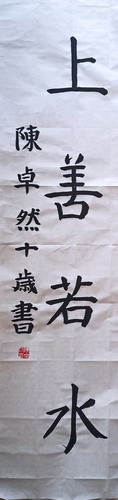 上善若水
陳卓然十歲書